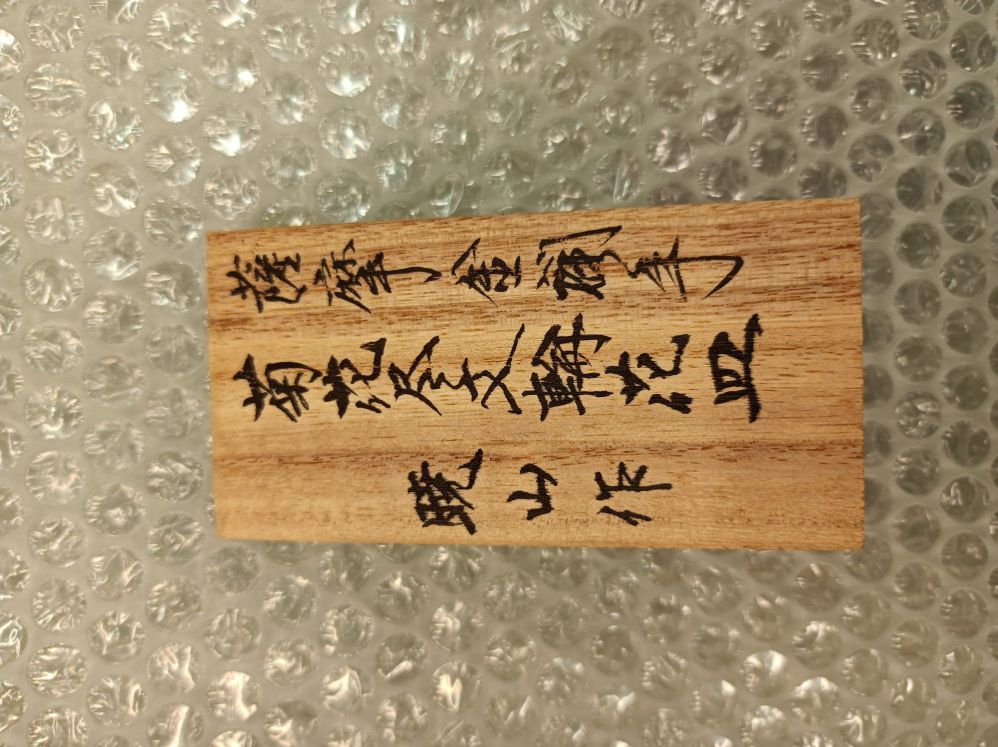 薩摩金襴手
菊花尽文輪花皿
暁山作